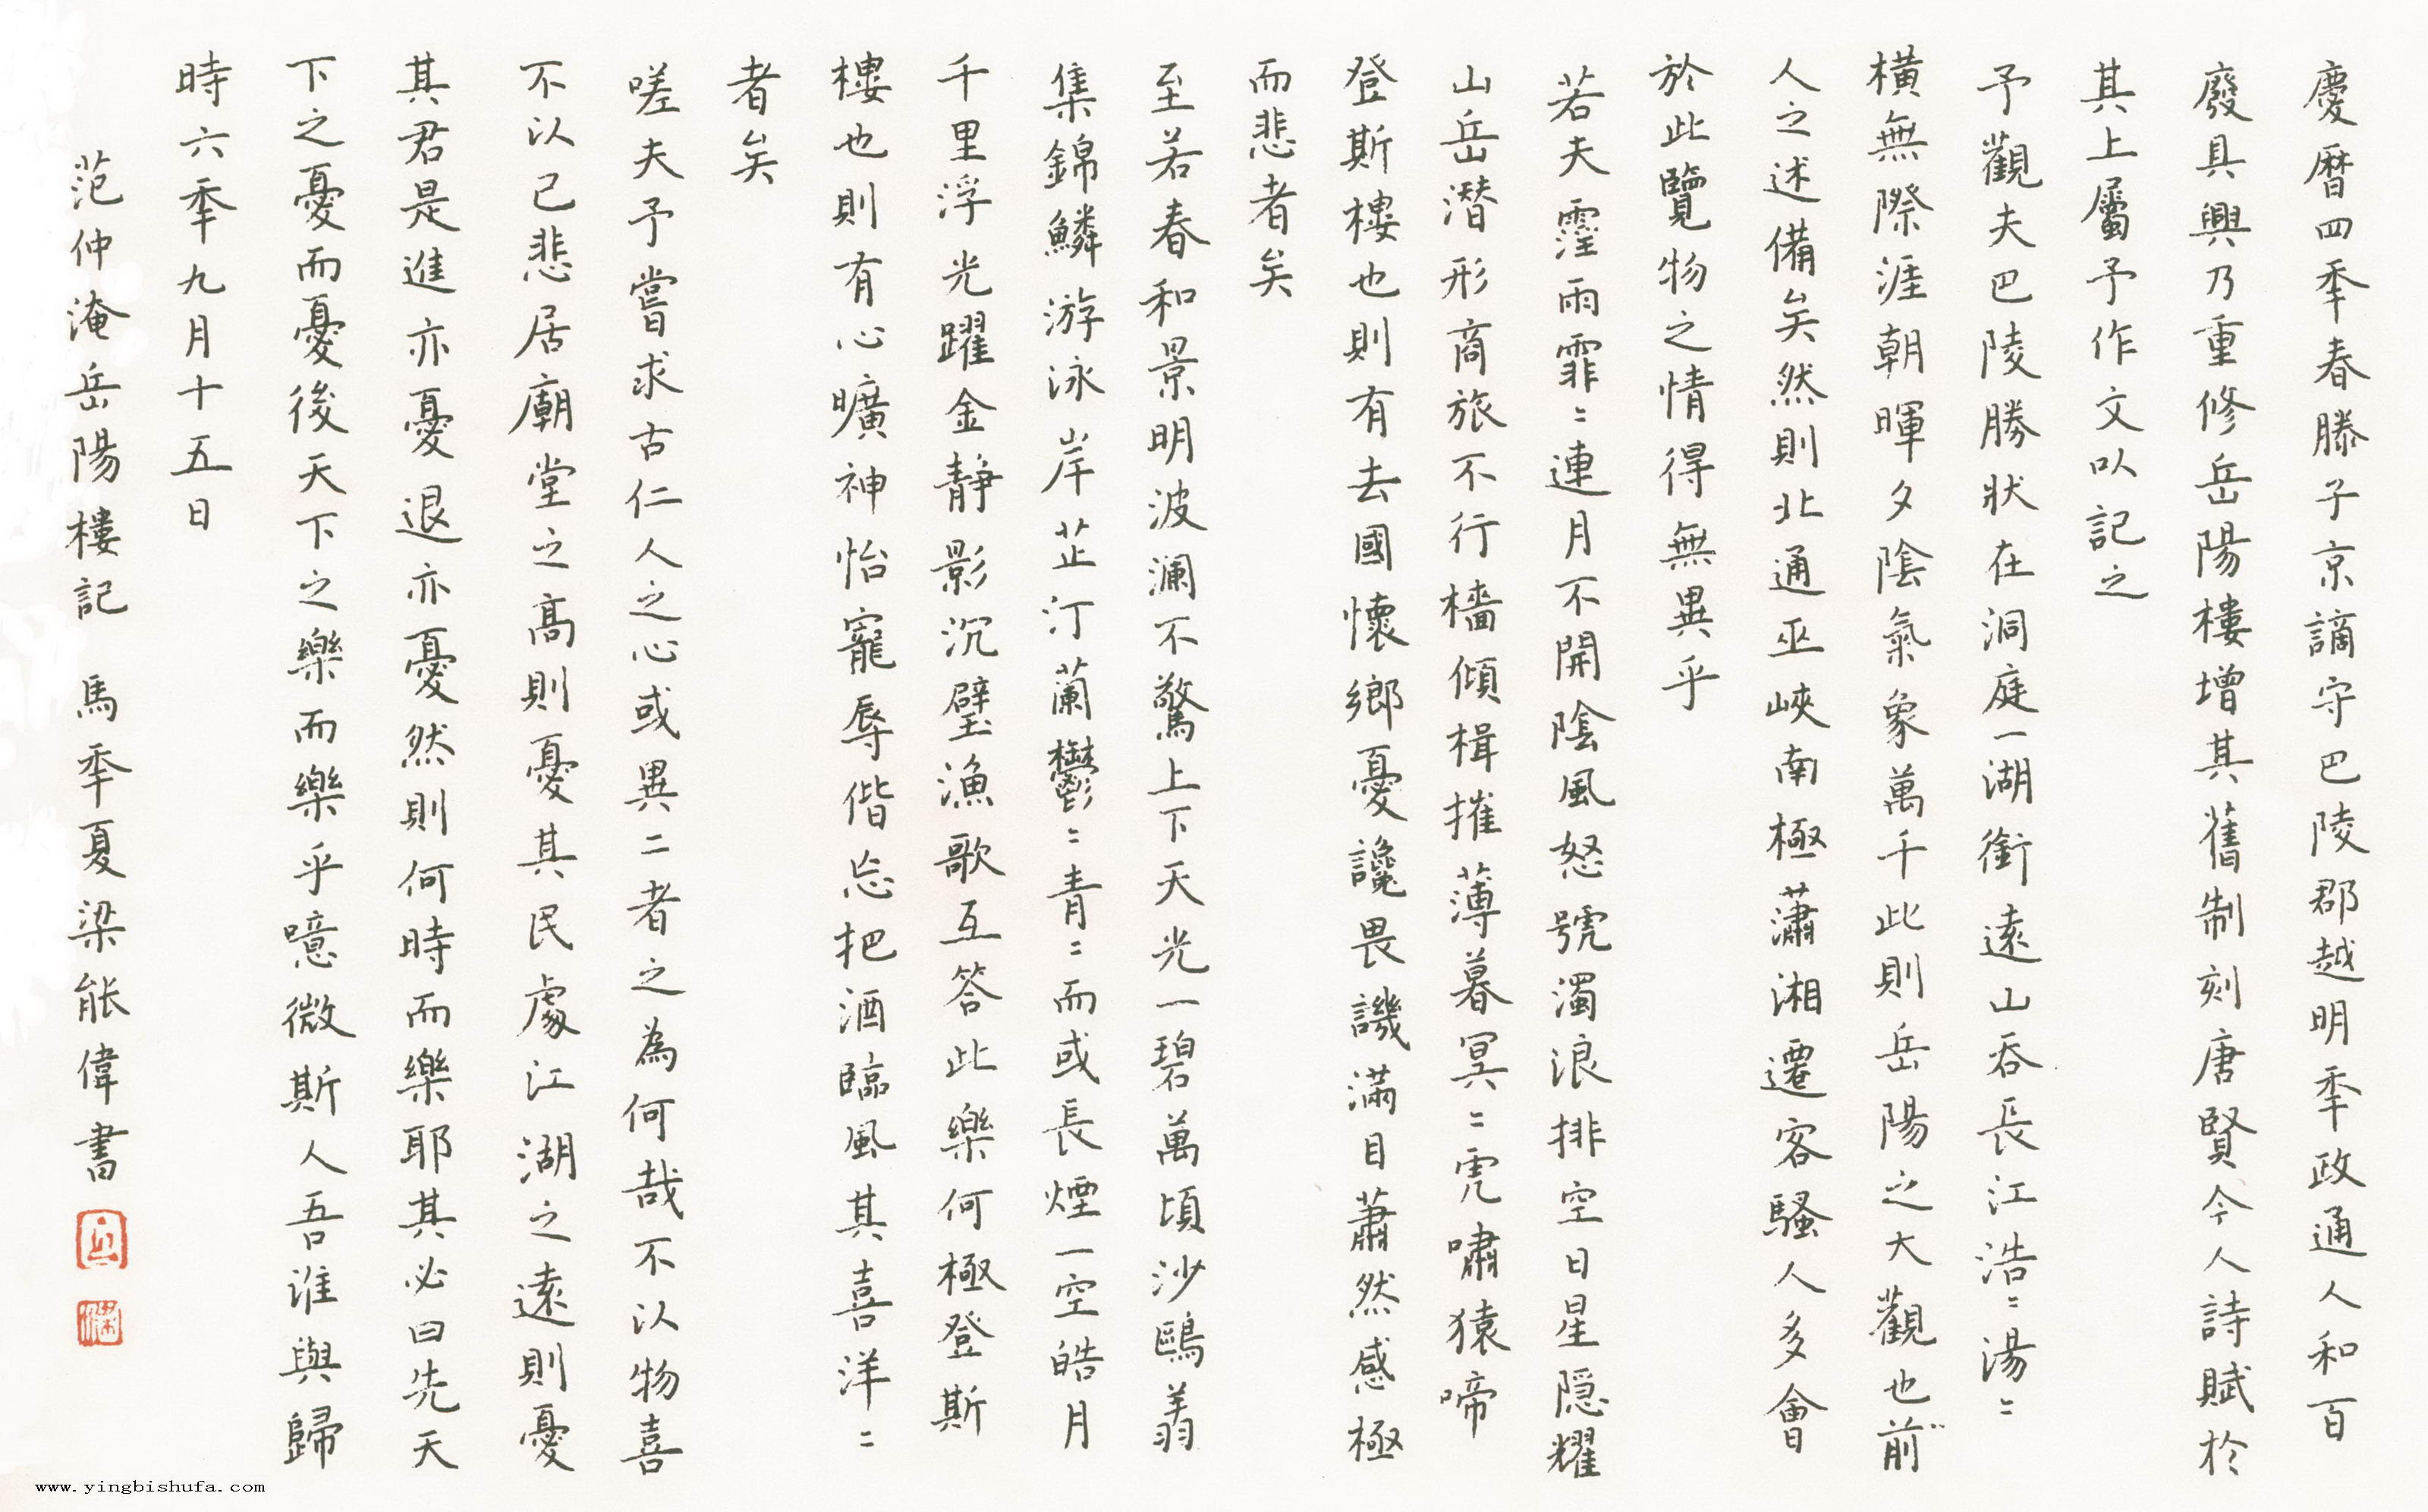 慶曆四季春滕子京謫守巴陵郡越明季政通人和百
廢具興乃重修岳陽樓增其舊制刻唐賢今人詩賦於
其上屬予作文以記之
予觀夫巴陵勝狀在洞庭一湖銜遠山吞長江浩〻湯〻
橫無際涯朝暉夕陰氣象萬千此則岳陽之大觀也前
人之述備矣然則北通巫峽南極瀟湘遷客騷人多會
於此覽物之情得無異乎
若夫霪雨霏〻連月不開陰風怒號濁浪排空日星隱耀
山岳潛形商旅不行檣傾楫摧薄暮冥〻虎嘯猿啼
登斯樓也則有去國懷鄉憂讒畏譏滿目蕭然感極
而悲者矣
至若春和景明波瀾不驚上下天光一碧萬頃沙鷗翔
集錦鱗游泳岸芷汀蘭鬱〻青〻而或長煙一空皓月
千里浮光躍金靜影沉璧漁歌互答此樂何極登斯
樓也則有心曠神怡寵辱偕忘把酒臨風其喜洋〻
者矣
嗟夫予嘗求古仁人之心或異二者之為何哉不以物喜
不以己悲居廟堂之高則憂其民處江湖之遠則憂
其君是進亦憂退亦憂然則何時而樂耶其必曰先天
下之憂而憂後天下之樂而樂乎噫微斯人吾誰與歸
時六季九月十五日
范仲淹岳陽樓記 馬季夏梁能偉書
www.yingbishufa.com